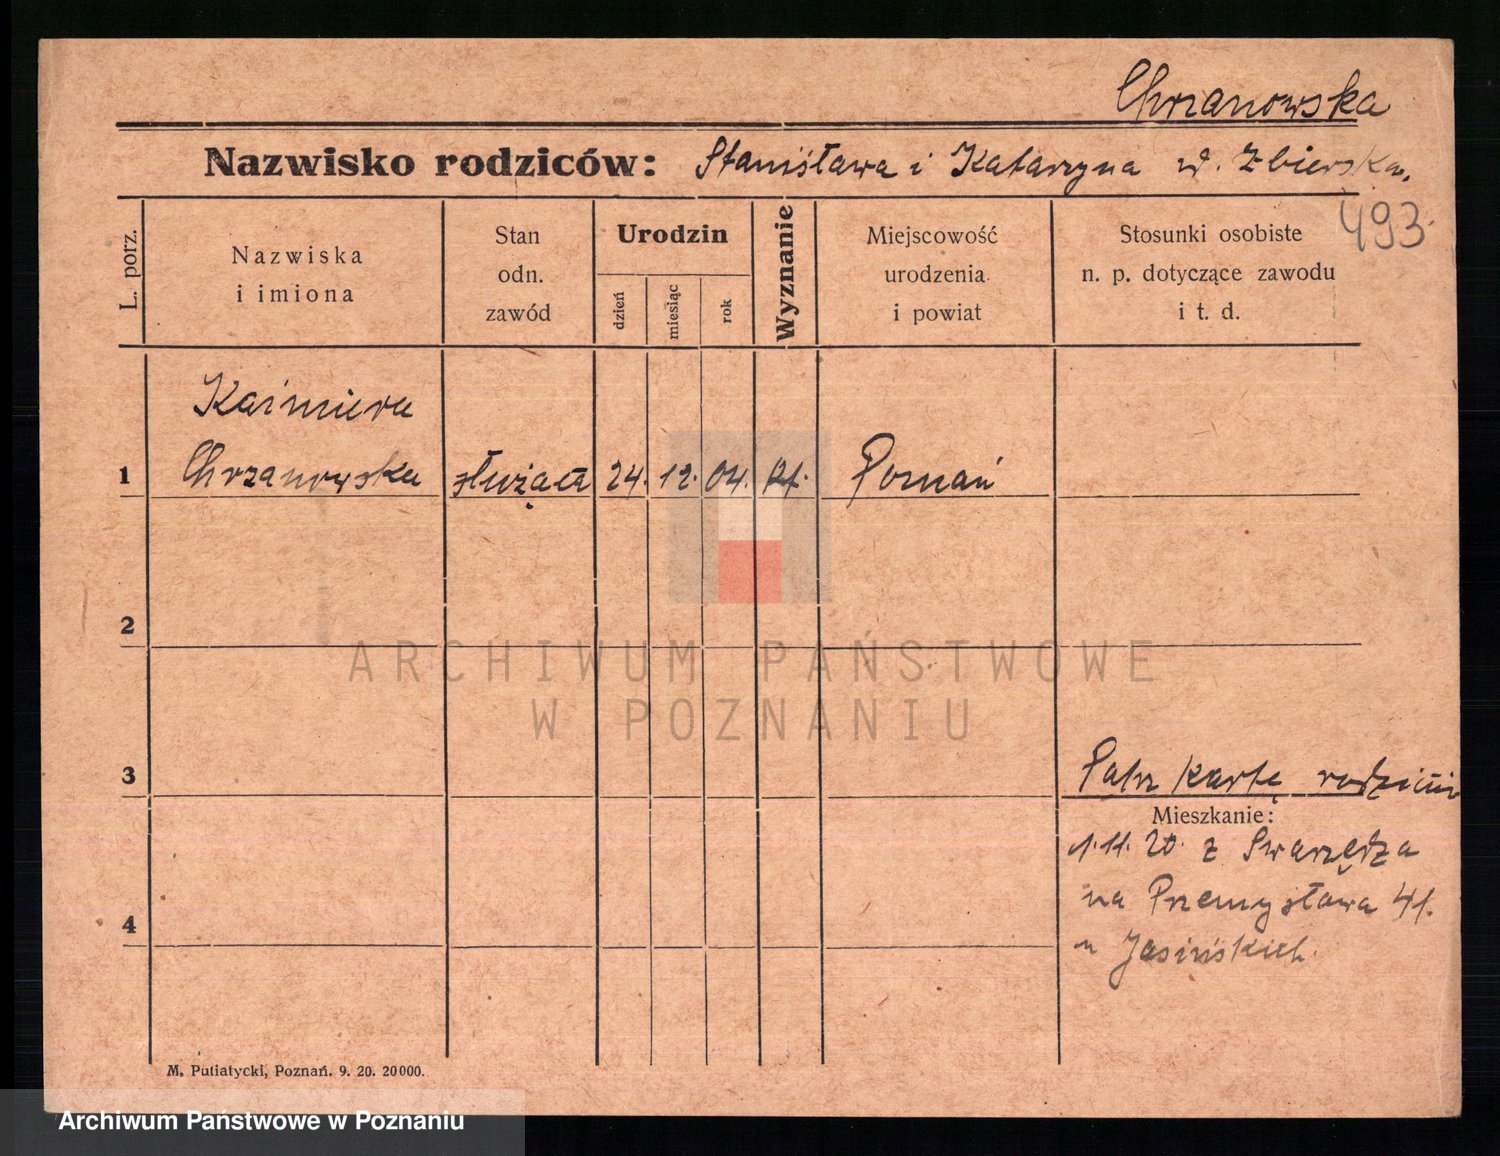 Chrzanowska
Nazwisko rodziców: Stanisława i Katarzyna d. Zbierska.
493.
L. porz.
Nazwiska
i imiona
Stan
odn.
zawód
Urodzin
dzień
miesiąc
rok
Wyznanie
Miejscowość
urodzenia
i powiat
Stosunki osobiste
n. p. dotyczące zawodu
i t. d.
Kaźmiera
1 Chrzanowska służąca 24. 12. 04. kt. Poznań
2
ARCHIWUM PAŃSTWOWE
W POZNANIU
3
Patrz kartę
Mieszkanie:
1.11.20. z Swarzędza
na Przemysława 41.
u Jasińskich.
4
M. Putiatycki, Poznań. 9. 20. 20000.
Archiwum Państwowe w Poznaniu